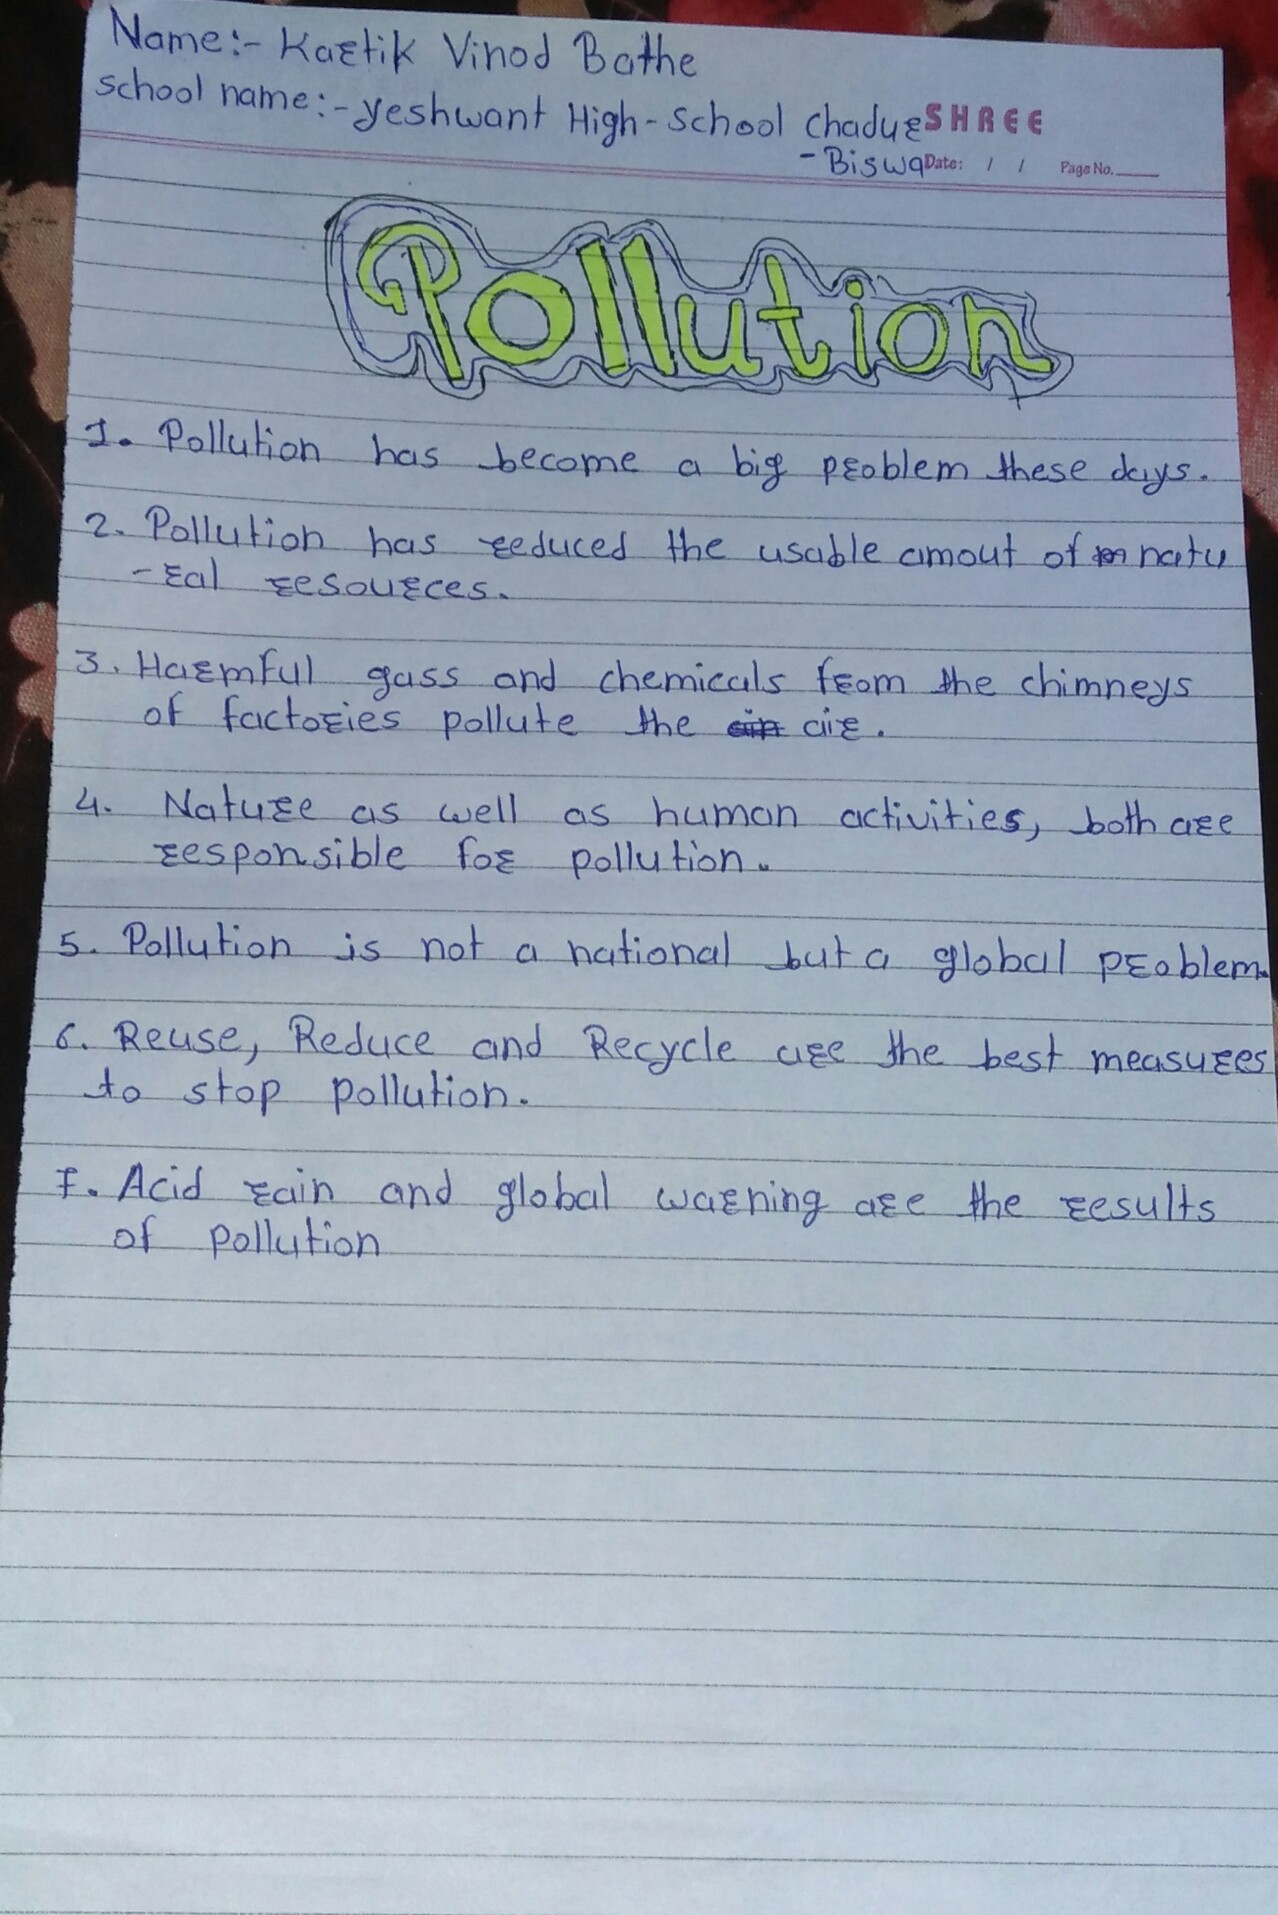 Name:- Kartik Vinod Bathe
school name:- yeshwant High-school chadur
SHREE
- Biswa
Date: / / Page No.
Pollution
1. Pollution has become a big problem these days.
2. Pollution has reduced the usable amout of natu
-ral resources.
3. Harmful gass and chemicals from the chimneys
of factories pollute the air.
4. Nature as well as human activities, both are
responsible for pollution.
5. Pollution is not a national but a global problem.
6. Reuse, Reduce and Recycle are the best measures
to stop pollution.
7. Acid rain and global warning are the results
of pollution